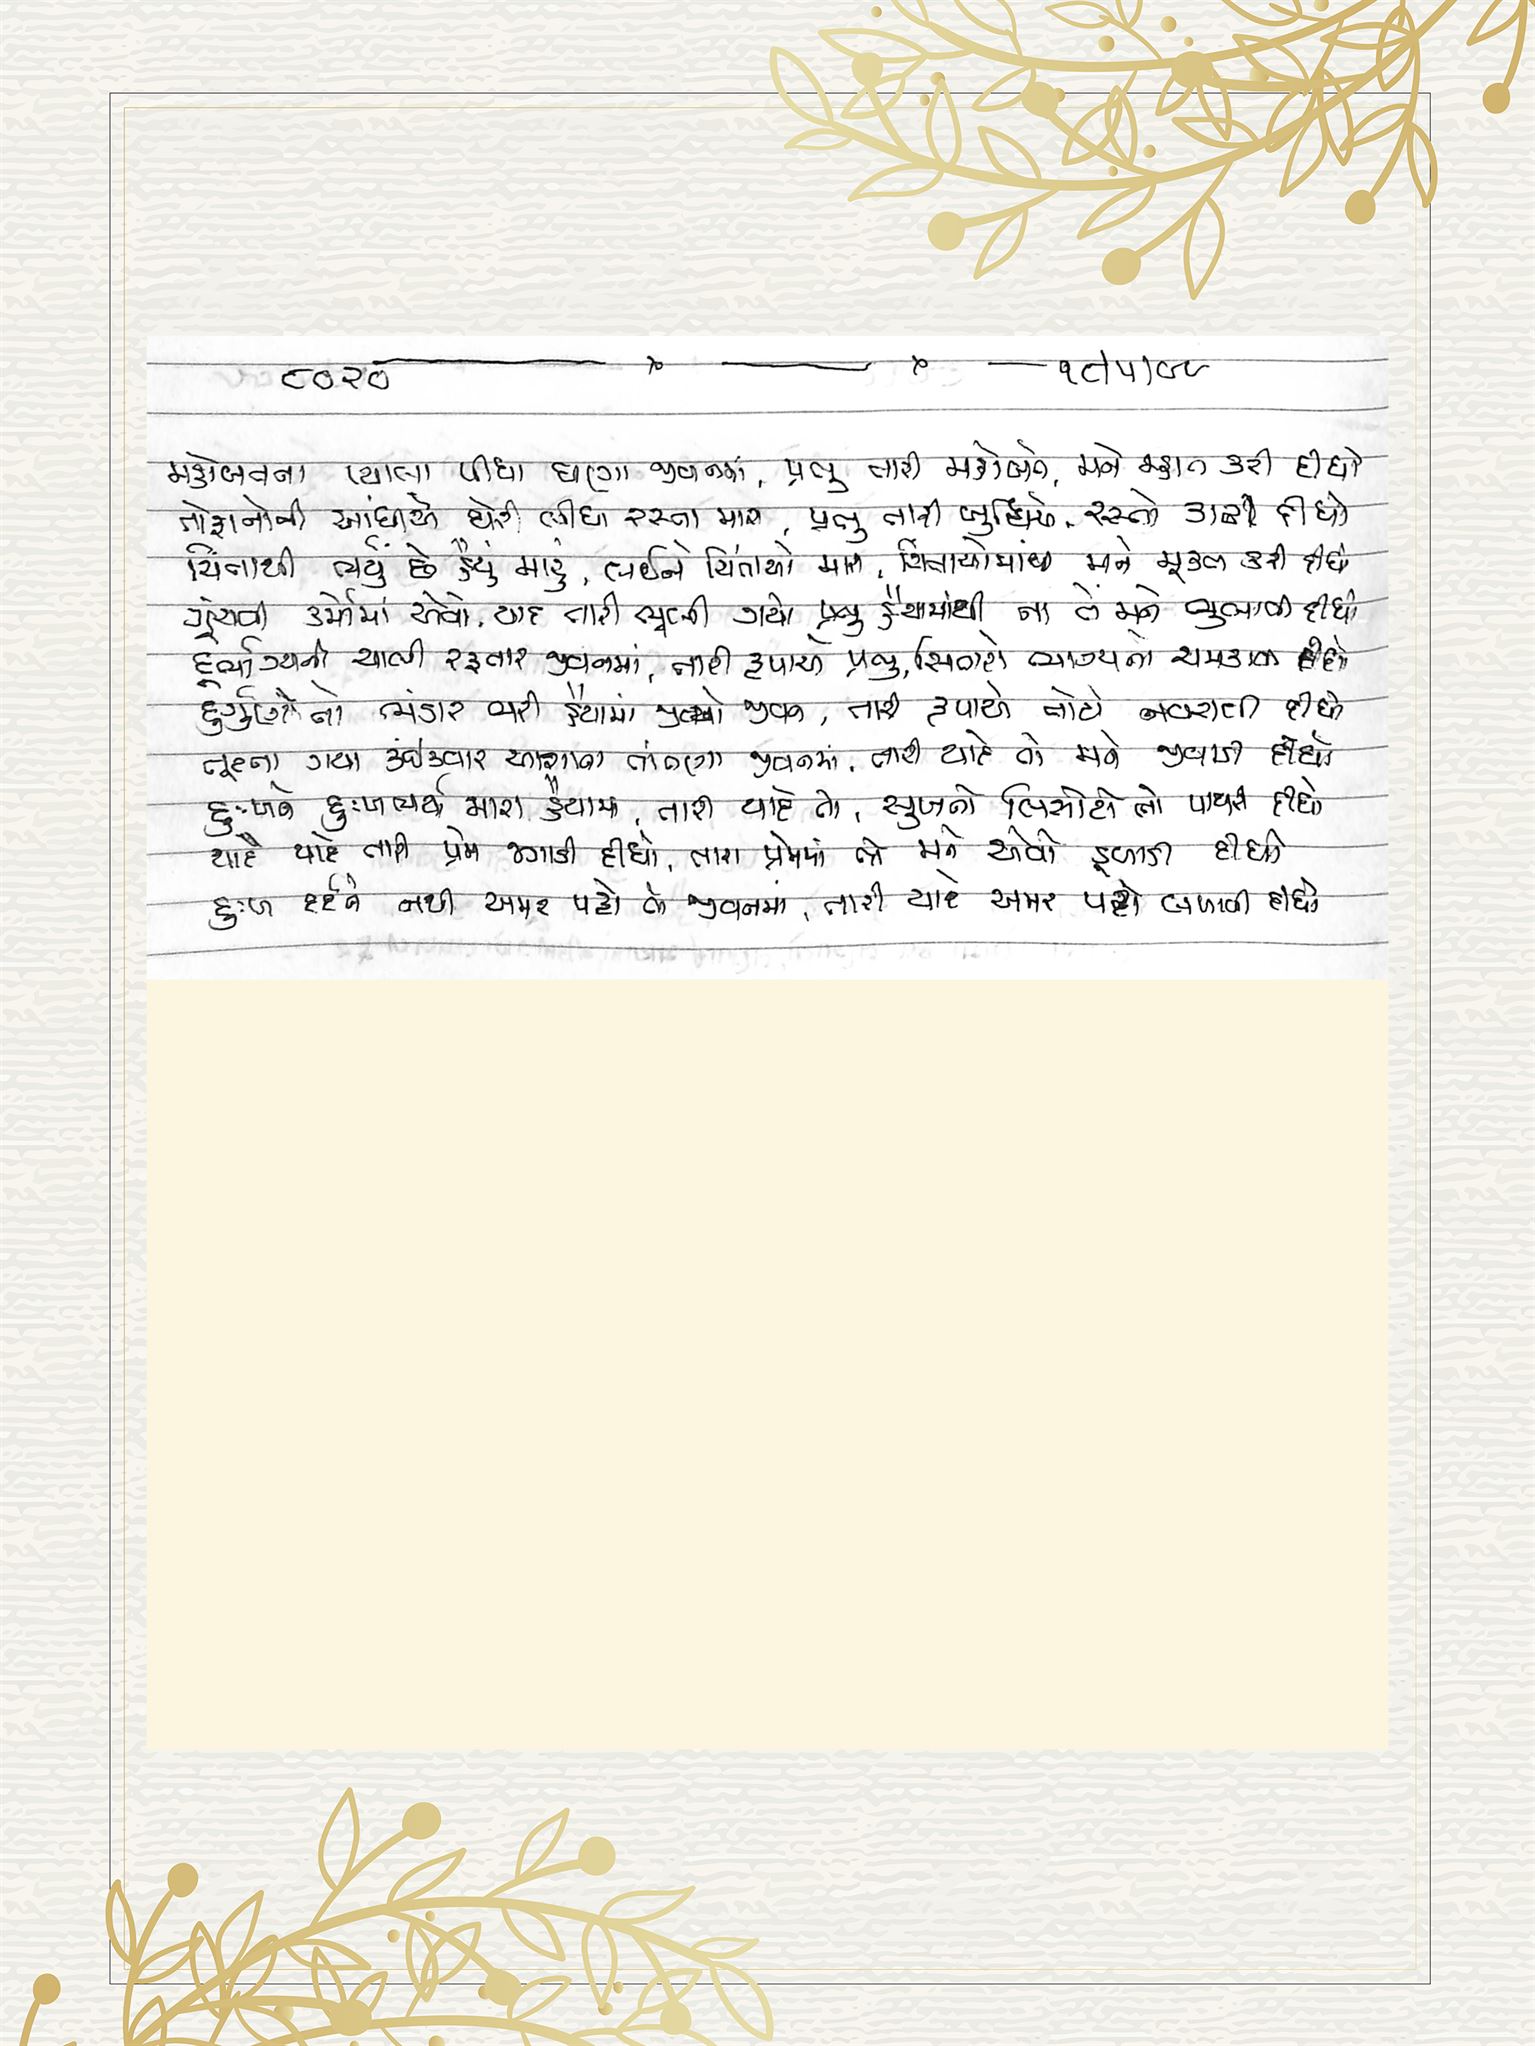 ૮૦૨૦ ૧૮/૫/૯૯
મહોબતના પ્યાલા પીધા ઘણા જીવનમાં, પ્રભુ તારી મહોબતે, મને મહાન કરી દીધો
તોફાનોની આંધીએ ઘેરી લીધા રસ્તા મારા, પ્રભુ તારી બુદ્ધિએ, રસ્તો કાઢી દીધો
ચિંતાથી ભર્યું છે હૈયું મારું, લઈને ચિંતાઓ મારી, ચિંતાઓમાંથી મને મૂક્ત કરી દીધો
ગૂંથાવી કર્મોમાં એવો, યાદ તારી ભૂલી ગયો પ્રભુ હૈયામાંથી ના તેં મને ભુલાવી દીધો
દુર્ભાગ્યની ચાલી રફતાર જીવનમાં, તારી કૃપાએ પ્રભુ, સિતારો ભાગ્યનો ચમકાવી દીધો
દુર્ગુણોનો ભંડાર ભરી હૈયામાં જીવ્યો જીવન, તારી કૃપાએ તોયે નવરાવી દીધો
તૂટતા ગયા કંઈકવાર આશાના તાંતણા જીવનમાં, તારી યાદે તો મને જીવાડી દીધો
દુઃખને દુઃખ ભર્યા મારા હૈયામાં, તારી યાદે તો, સુખનો બિસ્તરો તો પાથરી દીધો
યાદે યાદે તારી પ્રેમ જગાડી દીધો, તારા પ્રેમમાં તેં મને એવો ડૂબાડી દીધો
દુઃખ દર્દને નથી અમર પટ્ટો કે જીવનમાં, તારી યાદે અમર પટ્ટો બનાવી દીધો